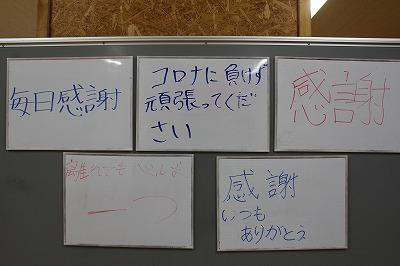 毎日感謝
コロナに負けず
頑張ってくだ
さい
感謝
離れてても 心は
一つ
感謝
いつも
ありがとう